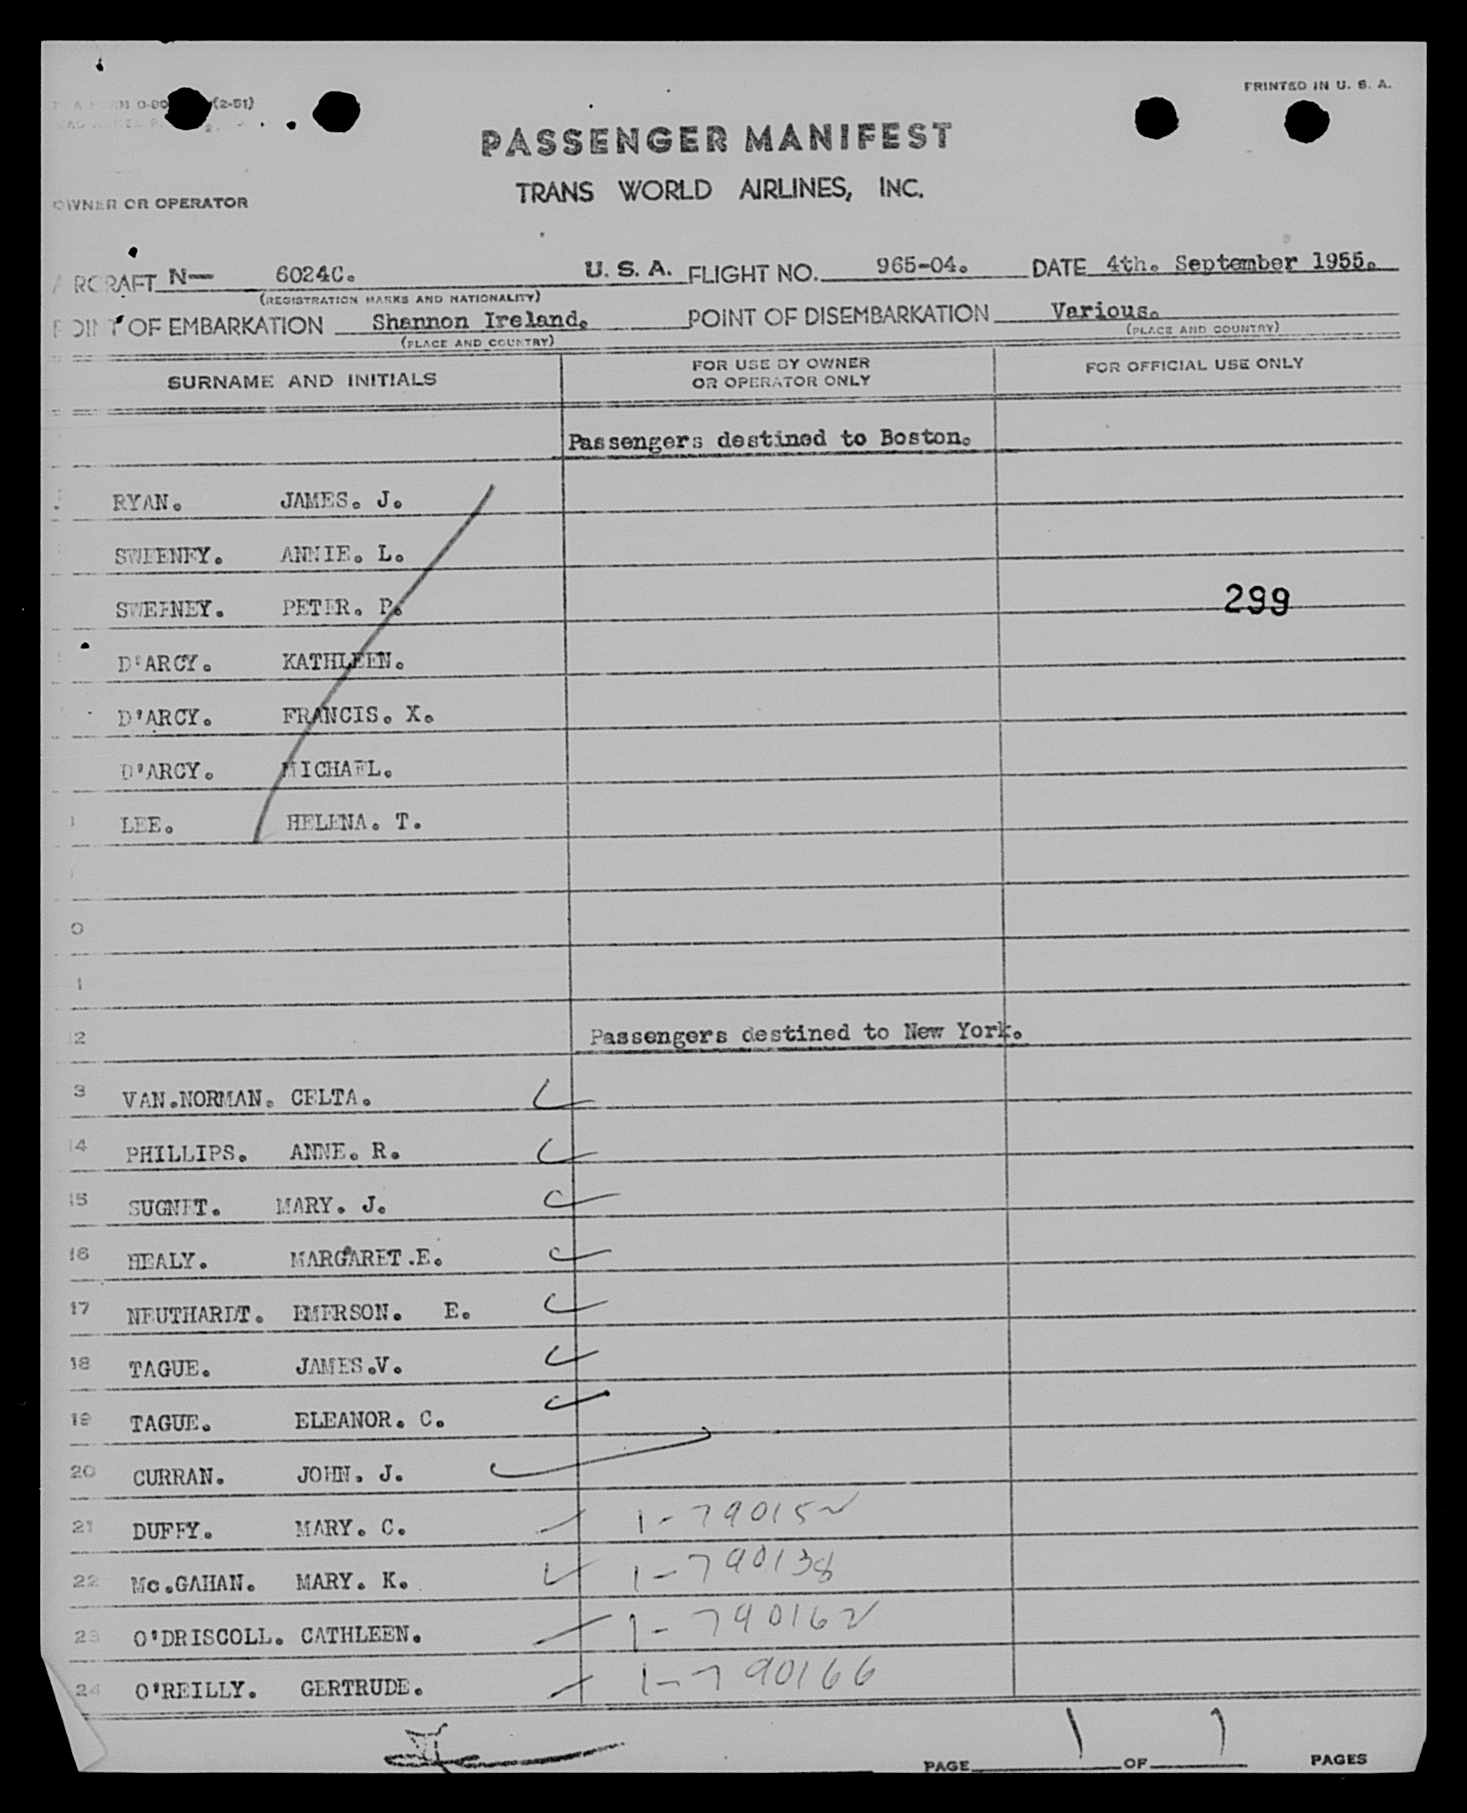 PRINTED IN U. S. A.
(2-51)
PASSENGER MANIFEST
TRANS WORLD AIRLINES, INC.
OWNER OR OPERATOR
AIRCRAFT N— 6024C. U. S. A. FLIGHT NO. 965-04. DATE 4th. September 1955.
(REGISTRATION MARKS AND NATIONALITY)
POINT OF EMBARKATION Shannon Ireland. POINT OF DISEMBARKATION Various.
(PLACE AND COUNTRY) (PLACE AND COUNTRY)
SURNAME AND INITIALS FOR USE BY OWNER OR OPERATOR ONLY FOR OFFICIAL USE ONLY
Passengers destined to Boston.
RYAN. JAMES. J.
SWEENEY. ANNIE. L.
SWEENEY. PETER. P. 299
D'ARCY. KATHLEEN.
D'ARCY. FRANCIS. X.
D'ARCY. MICHAEL.
LEE. HELENA. T.
0
1
12 Passengers destined to New York.
3 VAN.NORMAN. CELTA.
14 PHILLIPS. ANNE. R.
15 SUGNET. MARY. J.
16 HEALY. MARGARET.E.
17 NEUTHARDT. EMERSON. E.
18 TAGUE. JAMES.V.
19 TAGUE. ELEANOR. C.
20 CURRAN. JOHN. J.
21 DUFFY. MARY. C. 1-790152
22 Mc.GAHAN. MARY. K. 1-790138
23 O'DRISCOLL. CATHLEEN. 1-790162
24 O'REILLY. GERTRUDE. 1-790166
PAGE 1 OF 1 PAGES